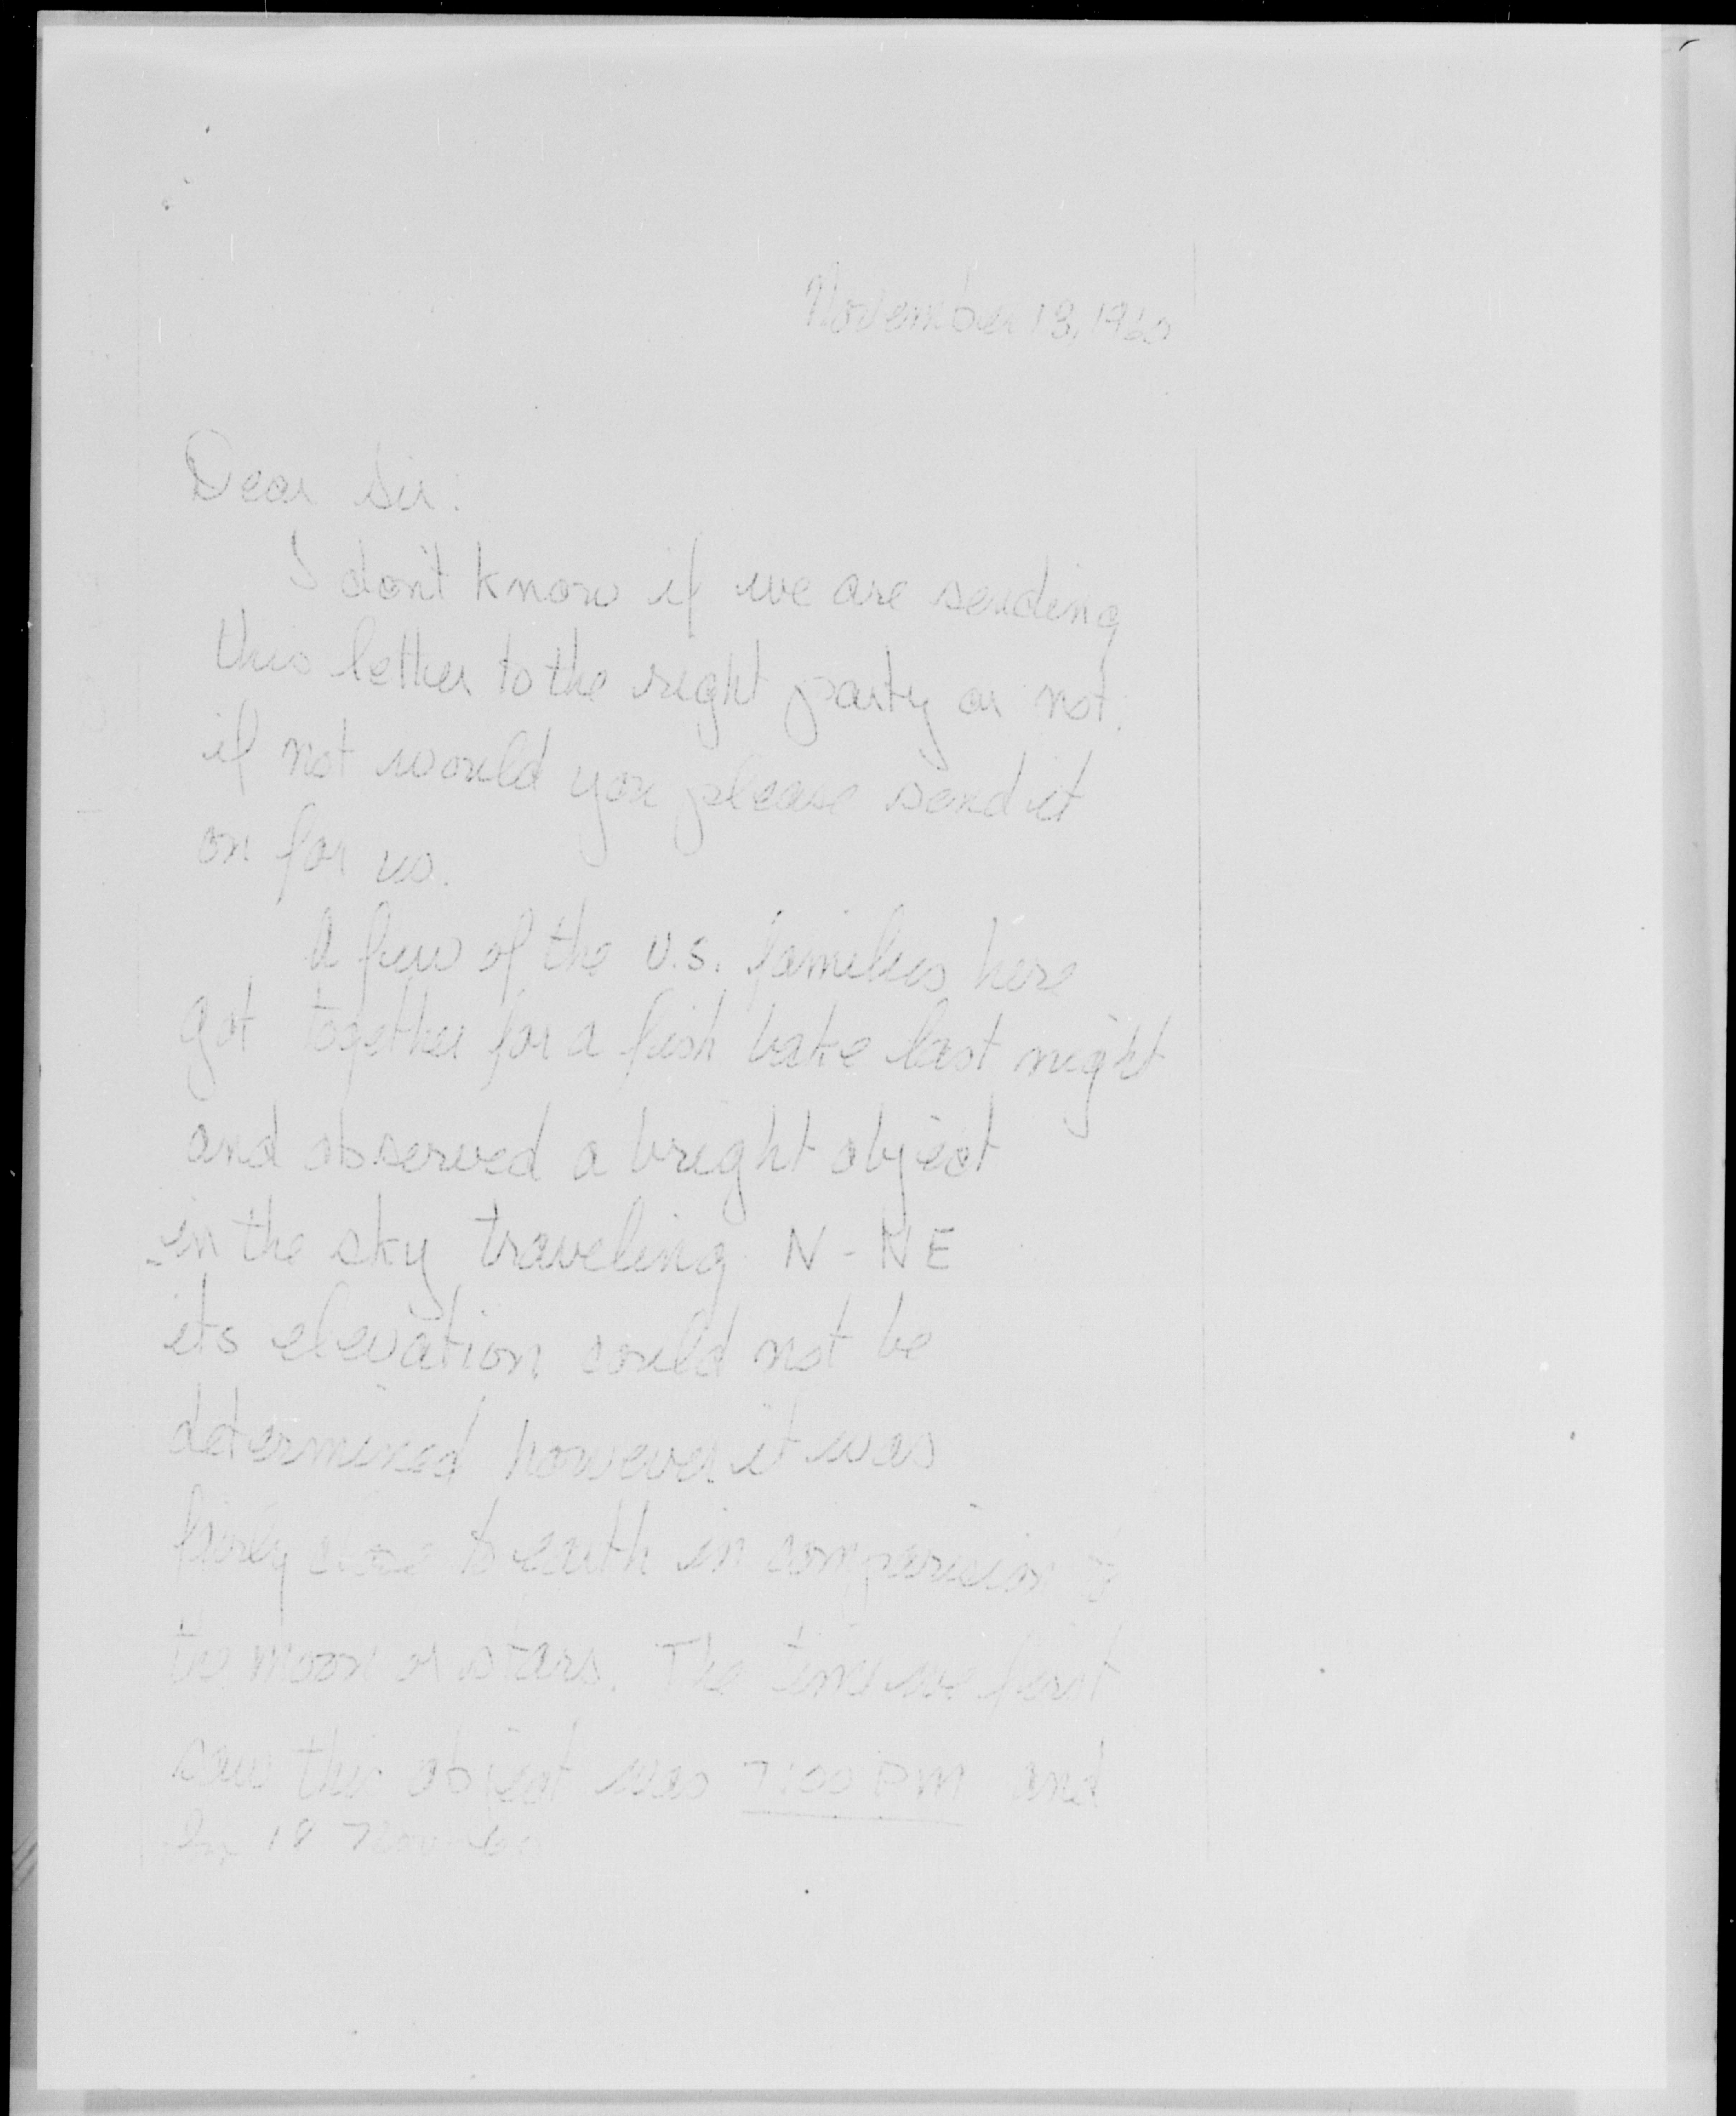 November 13, 1960
Dear Sir:
I don't know if we are sending
this letter to the right party or not.
if not would you please send it
on for us.
A few of the U.S. families here
got together for a fish bake last night
and observed a bright object
in the sky traveling N-NE
its elevation could not be
determined however it was
fairly close to earth in comparision to
the moon or stars. The time we first
saw this object was 7:00 PM and